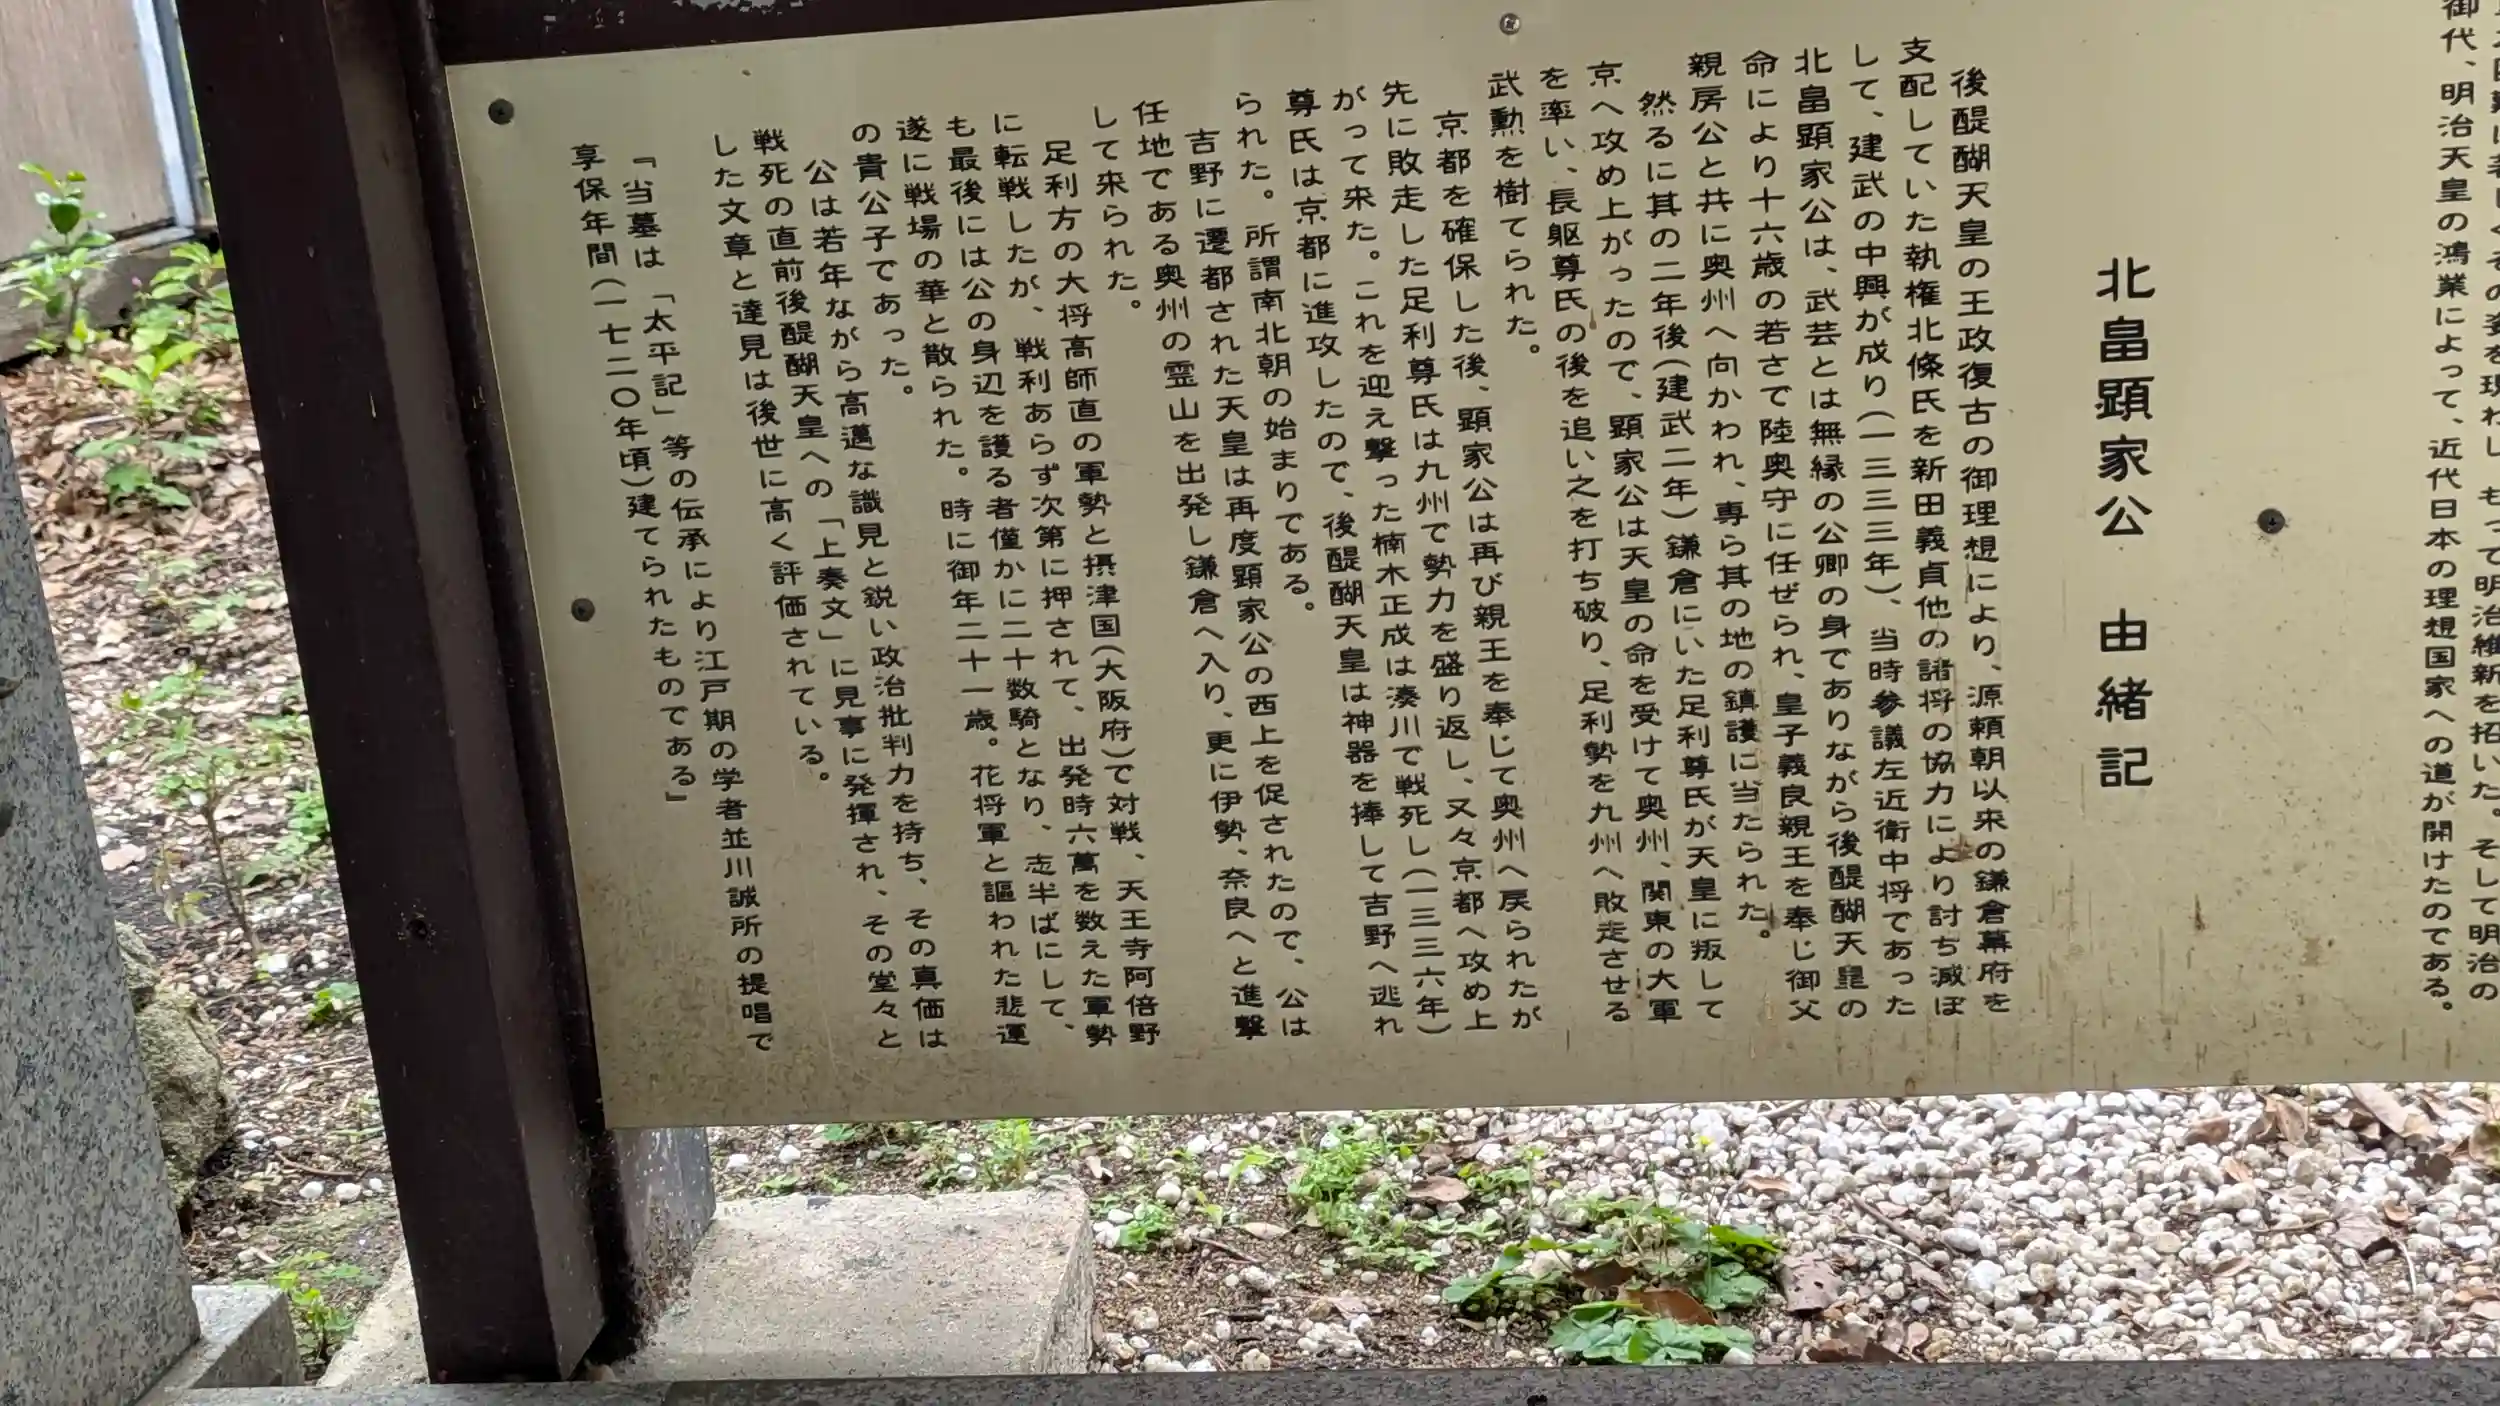 御代、明治天皇の鴻業によって、近代日本の理想国家への道が開けたのである。
北畠顕家公 由緒記
後醍醐天皇の王政復古の御理想により、源頼朝以来の鎌倉幕府を
支配していた執権北條氏を新田義貞他の諸将の協力により討ち滅ぼ
して、建武の中興が成り(一三三三年)、当時参議左近衛中将であった
北畠顕家公は、武芸とは無縁の公卿の身でありながら後醍醐天皇の
命により十六歳の若さで陸奥守に任ぜられ、皇子義良親王を奉じ御父
親房公と共に奥州へ向かわれ、専ら其の地の鎮護に当たられた。
然るに其の二年後(建武二年)鎌倉にいた足利尊氏が天皇に叛して
京へ攻め上がったので、顕家公は天皇の命を受けて奥州、関東の大軍
を率い、長躯尊氏の後を追い之を打ち破り、足利勢を九州へ敗走させる
武勲を樹てられた。
京都を確保した後、顕家公は再び親王を奉じて奥州へ戻られたが
先に敗走した足利尊氏は九州で勢力を盛り返し、又々京都へ攻め上
がって来た。これを迎え撃った楠木正成は湊川で戦死し(一三三六年)
尊氏は京都に進攻したので、後醍醐天皇は神器を捧して吉野へ逃れ
られた。所謂南北朝の始まりである。
吉野に遷都された天皇は再度顕家公の西上を促されたので、公は
任地である奥州の霊山を出発し鎌倉へ入り、更に伊勢、奈良へと進撃
して来られた。
足利方の大将高師直の軍勢と摂津国(大阪府)で対戦、天王寺阿倍野
に転戦したが、戦利あらず次第に押されて、出発時六萬を数えた軍勢
も最後には公の身辺を護る者僅かに二十数騎となり、志半ばにして、
遂に戦場の華と散られた。時に御年二十一歳。花将軍と謳われた悲運
の貴公子であった。
公は若年ながら高邁な識見と鋭い政治批判力を持ち、その真価は
戦死の直前後醍醐天皇への「上奏文」に見事に発揮され、その堂々と
した文章と達見は後世に高く評価されている。
『当墓は「太平記」等の伝承により江戸期の学者並川誠所の提唱で
享保年間(一七二〇年頃)建てられたものである』